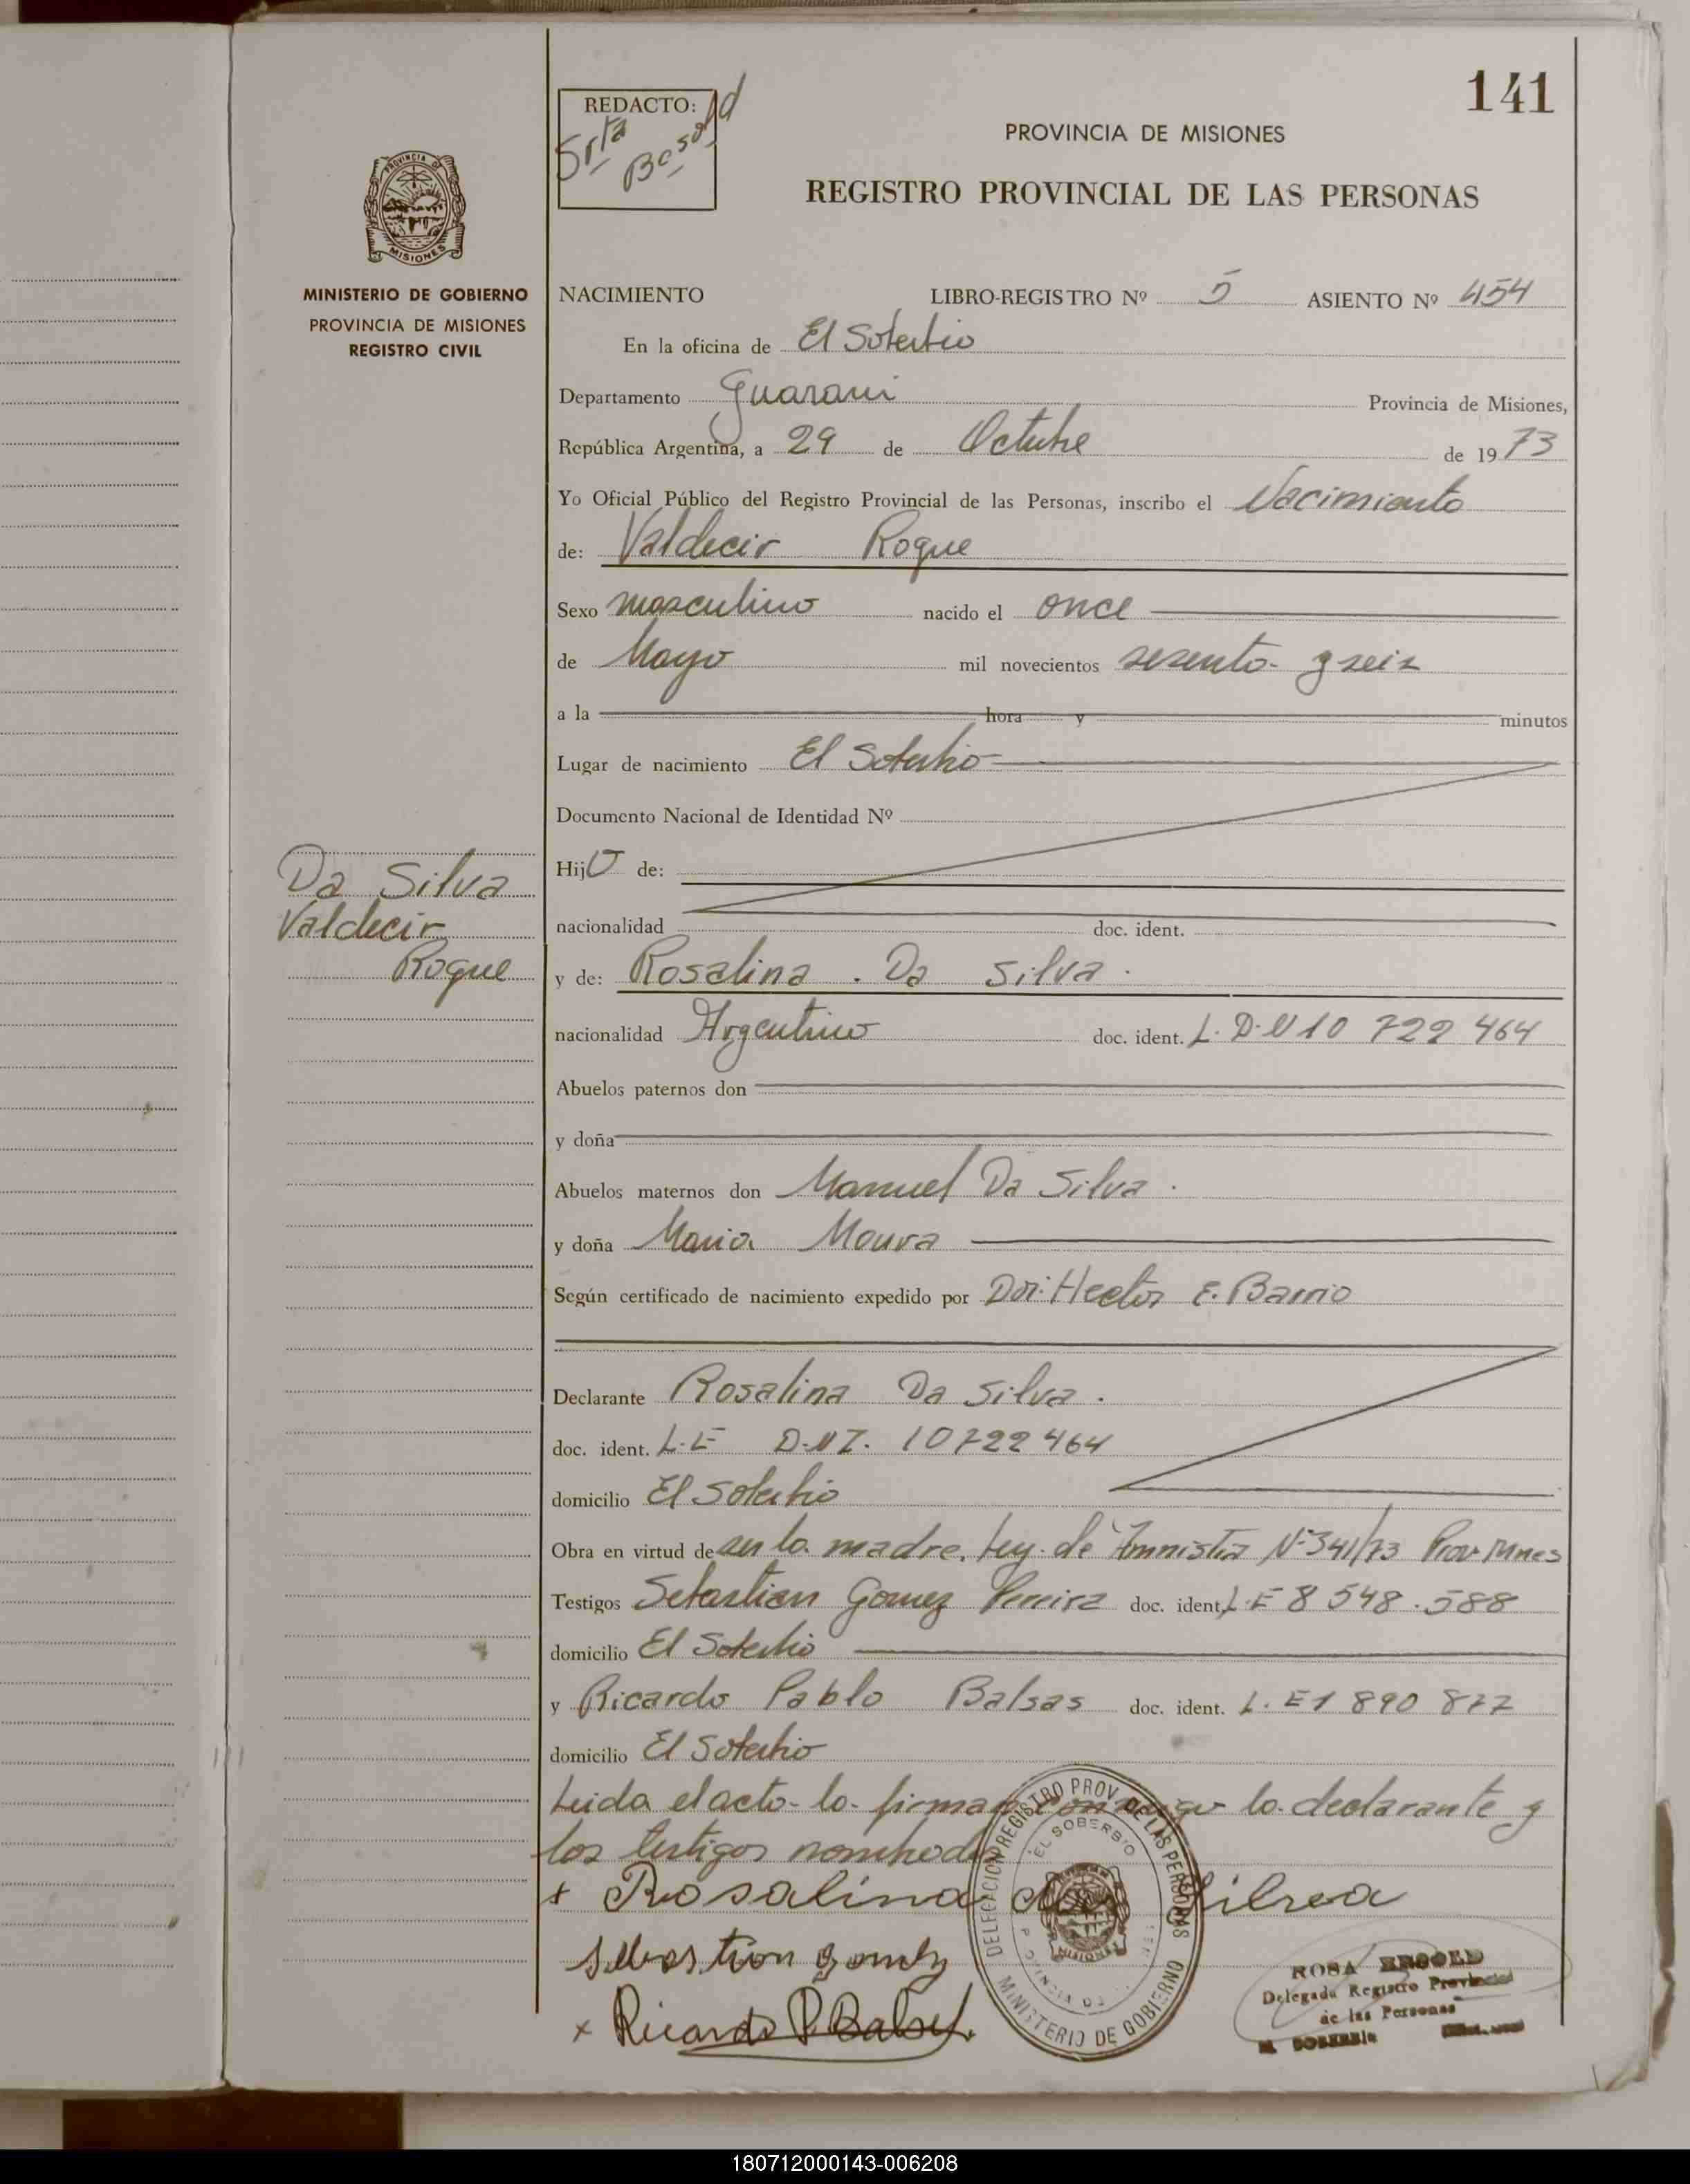 141
REDACTO:
Srta
Besold
PROVINCIA DE MISIONES
REGISTRO PROVINCIAL DE LAS PERSONAS
PROVINCIA DE
MISIONES
MINISTERIO DE GOBIERNO
PROVINCIA DE MISIONES
REGISTRO CIVIL
NACIMIENTO LIBRO-REGISTRO Nº 5 ASIENTO Nº 454
En la oficina de El Soberbio
Departamento Guarani Provincia de Misiones,
República Argentina, a 29 de Octubre de 1973
Yo Oficial Público del Registro Provincial de las Personas, inscribo el Nacimiento
de: Valdecir Roque
Sexo masculino nacido el once
de Mayo mil novecientos sesenta y seis
a la hora y minutos
Lugar de nacimiento El Soberbio
Documento Nacional de Identidad Nº
Da Silva
Valdecir
Roque
Hijo de:
nacionalidad doc. ident.
y de: Rosalina . Da Silva .
nacionalidad Argentina doc. ident. 10 722 464
Abuelos paternos don
y doña
Abuelos maternos don Manuel Da Silva .
y doña Maria Moura
Según certificado de nacimiento expedido por Hector E. Barrio
Declarante Rosalina Da Silva .
doc. ident. L.E D.N.I. 10722464
domicilio El Soberbio
Obra en virtud de ser la madre. Ley de Amnistia Nº 341/73 Prov. Mnes
Testigos Sebastian Gomez Pereira doc. ident. L.E 8 548.588
domicilio El Soberbio
y Ricardo Pablo Balsas doc. ident. L.E 1 890 877
domicilio El Soberbio
Leida el acta la firman conmigo la declarante y
los testigos nombrados
+ Rosalina da Silva
Sebastian Gomez
x Ricardo P. Balsas
DELEGACION REGISTRO PROV. DE LAS PERSONAS
EL SOBERBIO
MISIONES
MINISTERIO DE GOBIERNO
ROSA BESOLD
Delegada Registro Provincial
de las Personas
EL SOBERBIO
180712000143-006208